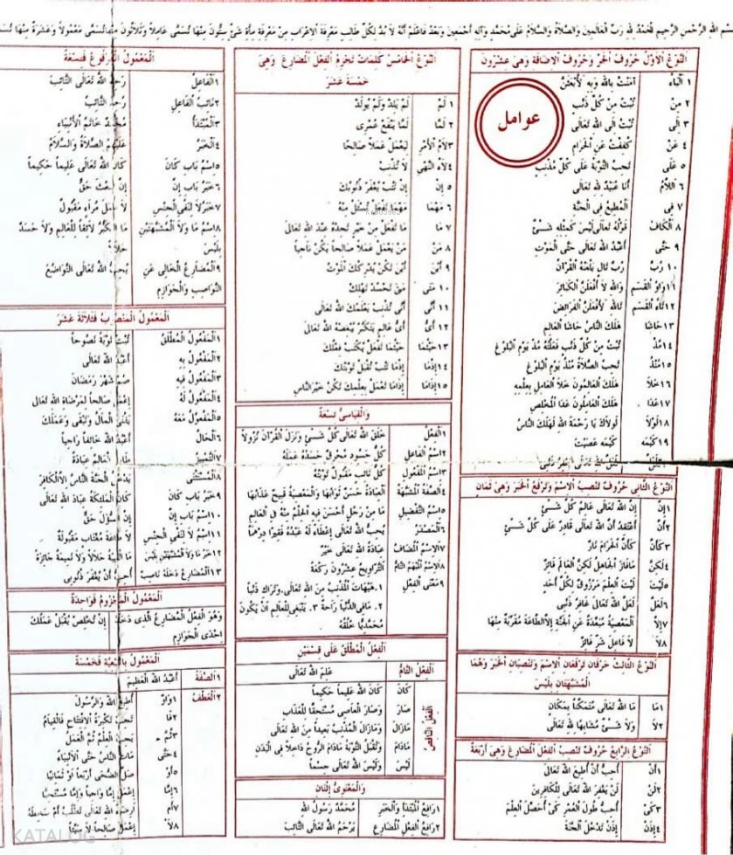 بسم الله الرّحمن الرّحيم الحمد لله ربّ العالمين والصّلاة والسّلام على محمّد وآله اجمعين وبعد فاعلم انّه لا بدّ لكلّ طالب معرفة الاعراب من معرفة مأة شئ ستّون منها تسمّى عاملاً وثلاثون منها تسمّى معمولاً وعشرة منها
اَلنّوع الاوّل حروف الجرّ وحروف الاضافة وهى عشرون
عوامل
١ اَلْبَاءُ آمنت بالله وبه لأبعثنّ
٢ مِنْ تبت من كلّ ذنب
٣ اِلَى تبت الى الله تعالى
٤ عَنْ كففت عن الحرام
٥ عَلَى تجب التّوبة على كلّ مذنب
٦ اَللّامُ انا عبيد لله تعالى
٧ فِى المطيع فى الجنّة
٨ اَلْكَافُ قوله تعالى ليس كمثله شئ
٩ حَتَّى أعبد الله تعالى حتّى الموت
١٠ رُبَّ ربّ تال يلعنه القرآن
١١ واو القسم والله لا أفعلنّ الكبائر
١٢ تاء القسم تالله لأفعلنّ الفرائض
١٣ حاشا هلك النّاس حاشا العالم
١٤ مذ تبت من كلّ ذنب فعلته مذ يوم البلوغ
١٥ منذ تجب الصّلاة منذ يوم البلوغ
١٦ خلا هلك العالمون خلا العامل بعلمه
١٧ عدا هلك العاملون عدا المخلص
١٨ لولا لولاك يا رحمة الله لهلك النّاس
١٩ كيمه كيمه عصيت
اَلنّوع الثّانى حروف تنصب الاسم وترفع الخبر وهى ثمان
١ إنّ إنّ الله تعالى عالم كلّ شئ
٢ أنّ أعتقد أنّ الله تعالى قادر على كلّ شئ
٣ كأنّ كأنّ الحرام نار
٤ لكنّ مافاز الجاهل لكنّ العالم فائز
٥ ليت ليت العلم مرزوق لكلّ أحد
٦ لعلّ لعلّ الله تعالى غافر ذنبى
٧ إلّا المعصية مبعّدة عن الجنّة إلّا الطّاعة مقرّبة منها
٨ لا لا فاعل شرّ فائز
اَلنّوع الثّالث حرفان ترفعان الاسم وتنصبان الخبر وهما
المشبّهتان بليس
١ ما ما الله تعالى متمكّنا بمكان
٢ لا ولا شئ مشابها لله تعالى
اَلنّوع الرّابع حروف تنصب الفعل المضارع وهى أربعة
١ أن أحبّ أن أطيع الله تعالى
٢ لن لن يغفر الله تعالى للكافرين
٣ كى أحبّ طول العمر كى أحصّل العلم
٤ إذن إذن تدخل الجنّة
اَلنّوع الخامس كلمات تجزم الفعل المضارع وهى
خمسة عشر
١ لم لم يلد ولم يولد
٢ لمّا لمّا ينفع عمرى
٣ لام الأمر ليعمل عملا صالحا
٤ لاء النّهى لا تذنب
٥ إن إن تتب يغفر ذنوبك
٦ مهما مهما تفعل تسئل منه
٧ ما ما تفعل من خير تجده عند الله تعالى
٨ من من يعمل عملا صالحا يكن ناجيا
٩ أين أين تكن يدركك الموت
١٠ متى متى تحسد تهلك
١١ أنّى أنّى تذنب يعلمك الله تعالى
١٢ أىّ أىّ عالم يتكبّر يبغضه الله تعالى
١٣ حيثما حيثما تفعل يكتب فعلك
١٤ إذما إذما تتب تقبل توبتك
١٥ إذاما إذاما تعمل بعلمك تكن خير النّاس
والقياسى تسعة
١ الفعل خلق الله تعالى كلّ شئ ونزل القرآن نزولا
٢ اسم الفاعل كلّ حسود محرق حسده عمله
٣ اسم المفعول كلّ تائب مقبول توبته
٤ الصّفة المشبّهة العبادة حسن ثوابها والمعصية قبيح عذابها
٥ اسم التّفضيل ما من رجل أحسن فيه العلم منه فى العالم
٦ المصدر يحبّ الله تعالى إعطاء له عبده فقيرا درهما
٧ الاسم المضاف عبادة الله تعالى خير
٨ الاسم المبهم التّامّ التّراويح عشرون ركعة
٩ معنى الفعل ١. هيهات المذنب من الله تعالى وتراك ذنبا
٢. مافى الدّنيا راحة ٣. ينبغى للعالم أن يكون
محمّديّا خلقه
الفعل المطلق على قسمين
الفعل التّامّ علم الله تعالى
الفعل النّاقص
كان كان الله عليما حكيما
صار وصار العاصى مستحقّا للعذاب
مازال ومازال المذنب بعيدا من الله تعالى
مادام وتقبل التّوبة مادام الرّوح داخلا فى البدن
ليس وليس الله تعالى جسما
والمعنوىّ إثنان
١ رافع المبتدأ والخبر محمّد رسول الله
٢ رافع الفعل المضارع يرحم الله تعالى التّائب
المعمول المرفوع فتسعة
١ الفاعل رحم الله تعالى التّائب
٢ نائب الفاعل رحم التّائب
٣ المبتدأ محمّد خاتم الأنبياء
٤ الخبر عليهم الصّلاة والسّلام
٥ اسم باب كان كان الله تعالى عليما حكيما
٦ خبر باب إنّ إنّ البعث حقّ
٧ خبر لا لنفى الجنس لا عمل مراء مقبول
٨ اسم ما ولا المشبّهتين ما التّكبّر لائقا للعالم ولا حسد
بليس حلالا
٩ المضارع الخالى عن يحبّ الله تعالى التّواضع
النّواصب والجوازم
المعمول المنصوب فثلاثة عشر
١ المفعول المطلق تبت توبة نصوحا
٢ المفعول به أعبد الله تعالى
٣ المفعول فيه صم شهر رمضان
٤ المفعول له إعمل صالحا لمرضاة الله تعالى
٥ المفعول معه يفنى المال وتبقى وعملك
٦ الحال أعبد الله خائفا راجيا
٧ التّمييز طاب العالم عبادة
٨ المستثنى يدخل الجنّة النّاس الّا الكافر
٩ خبر باب كان كان الملئكة عباد الله تعالى
١٠ اسم باب إنّ إنّ السّؤال حقّ
١١ اسم لا لنفى الجنس لا طاعة مغتاب مقبولة
١٢ خبر ما ولا المشبّهتين بليس ما الغيبة حلالا ولا نميمة جائزة
١٣ المضارع دخله ناصب أحبّ أن يغفر ذنوبى
المعمول المجزوم فواحدة
وهو الفعل المضارع الّذى دخله إن تخلص يقبل عملك
احدى الجوازم
المعمول بالتّبعيّة فخمسة
١ الصّفة أعبد الله العظيم
٢ العطف
١ واو أطيع الله والرّسول
٢ فا تجب تكبيرة الافتتاح فالقيام
٣ ثمّ يجب العلم ثمّ العمل
٤ حتّى مات النّاس حتّى الأنبياء
٥ أو صلّ الضّحى أربعا أو ثمانيا
٦ إمّا إعمل إمّا واجبا وإمّا مستحبّا
٨ لا إعمل صالحا لا سيّئا
KATALOG